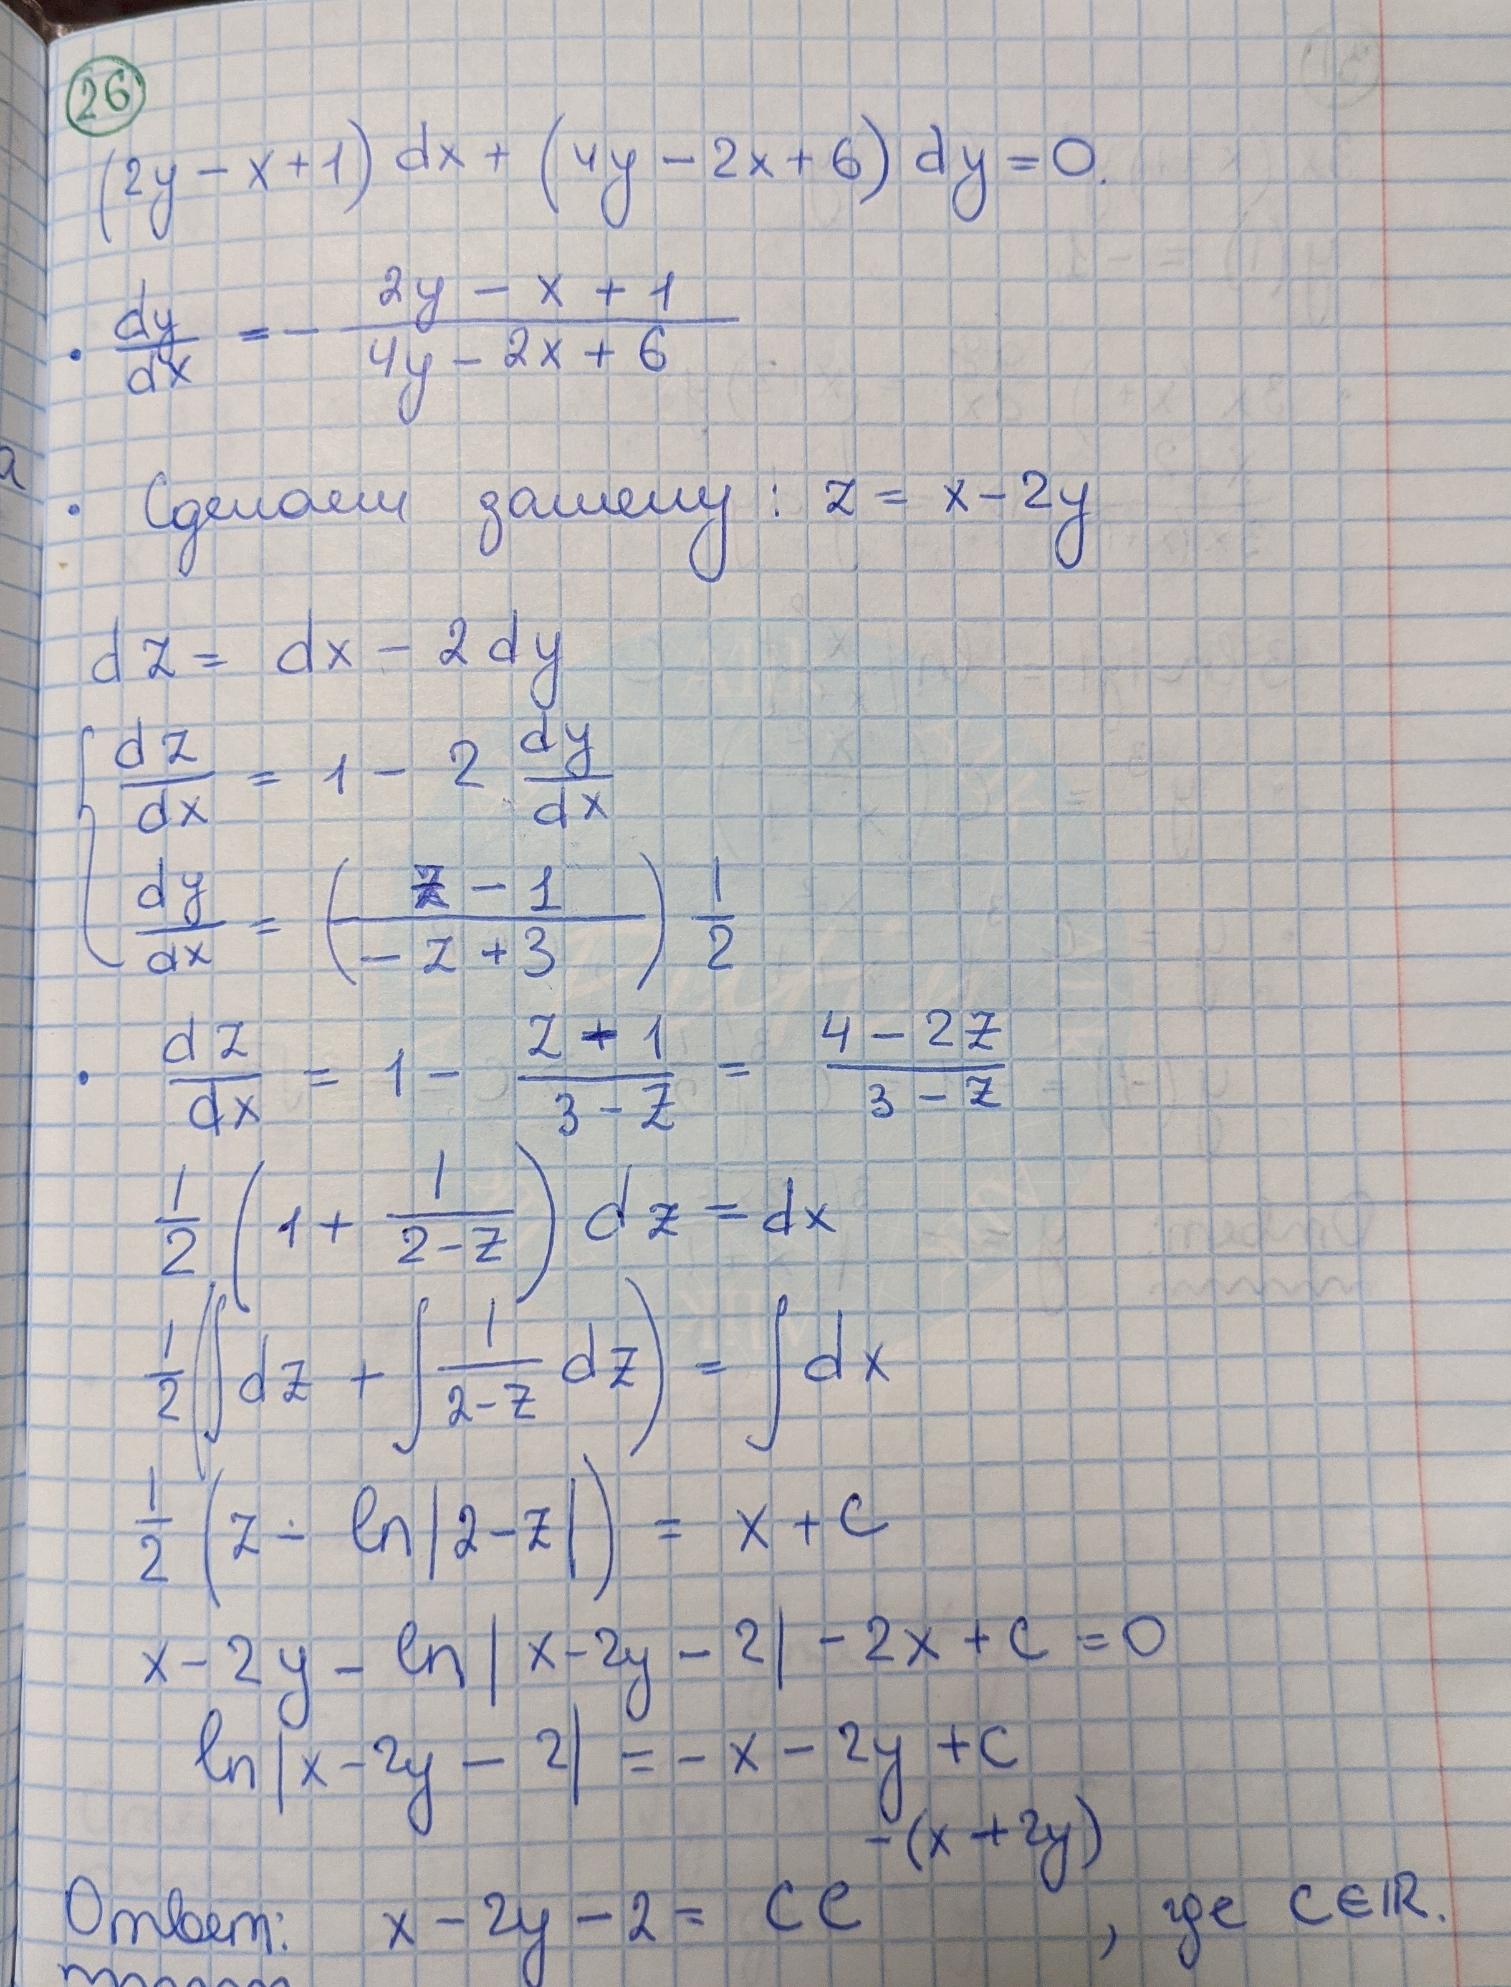 26
(2y - x + 1) dx + (4y - 2x + 6) dy = 0.
• dy/dx = - (2y - x + 1)/(4y - 2x + 6)
• Сделаем замену: z = x - 2y
dz = dx - 2dy
{ dz/dx = 1 - 2 dy/dx
dy/dx = ((z - 1)/(-z + 3)) 1/2
• dz/dx = 1 - (z - 1)/(3 - z) = (4 - 2z)/(3 - z)
1/2 (1 + 1/(2-z)) dz = dx
1/2 (∫dz + ∫ 1/(2-z) dz) = ∫dx
1/2 (z - ln|2-z|) = x + C
x - 2y - ln|x-2y-2| - 2x + C = 0
ln|x-2y-2| = -x - 2y + C
Ответ: x - 2y - 2 = Ce^-(x+2y), где C∈ℝ.